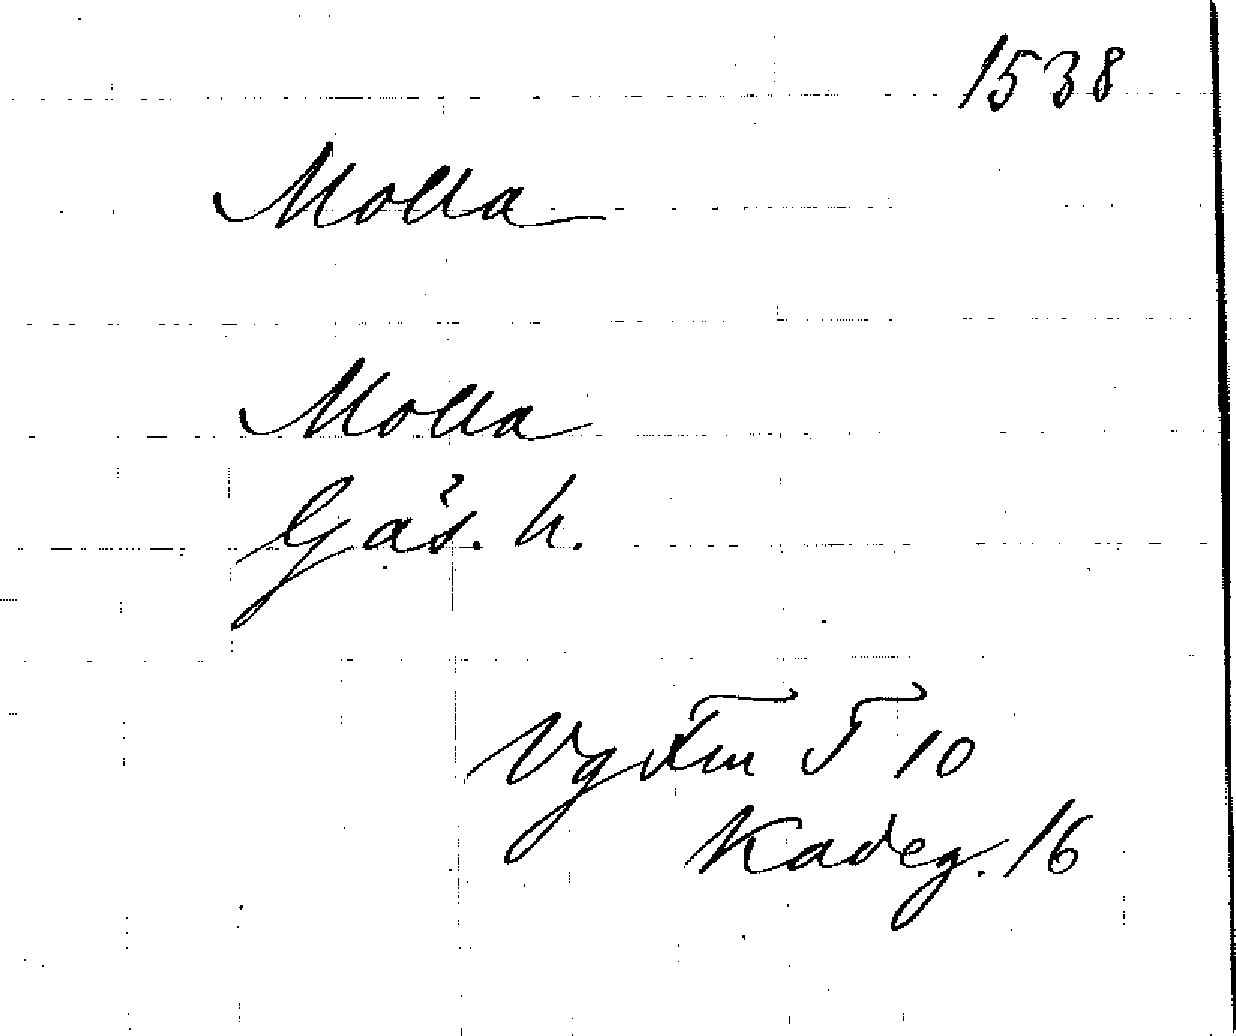 1538
Molla
Molla
Gás. h.
10
Kadeg. 16